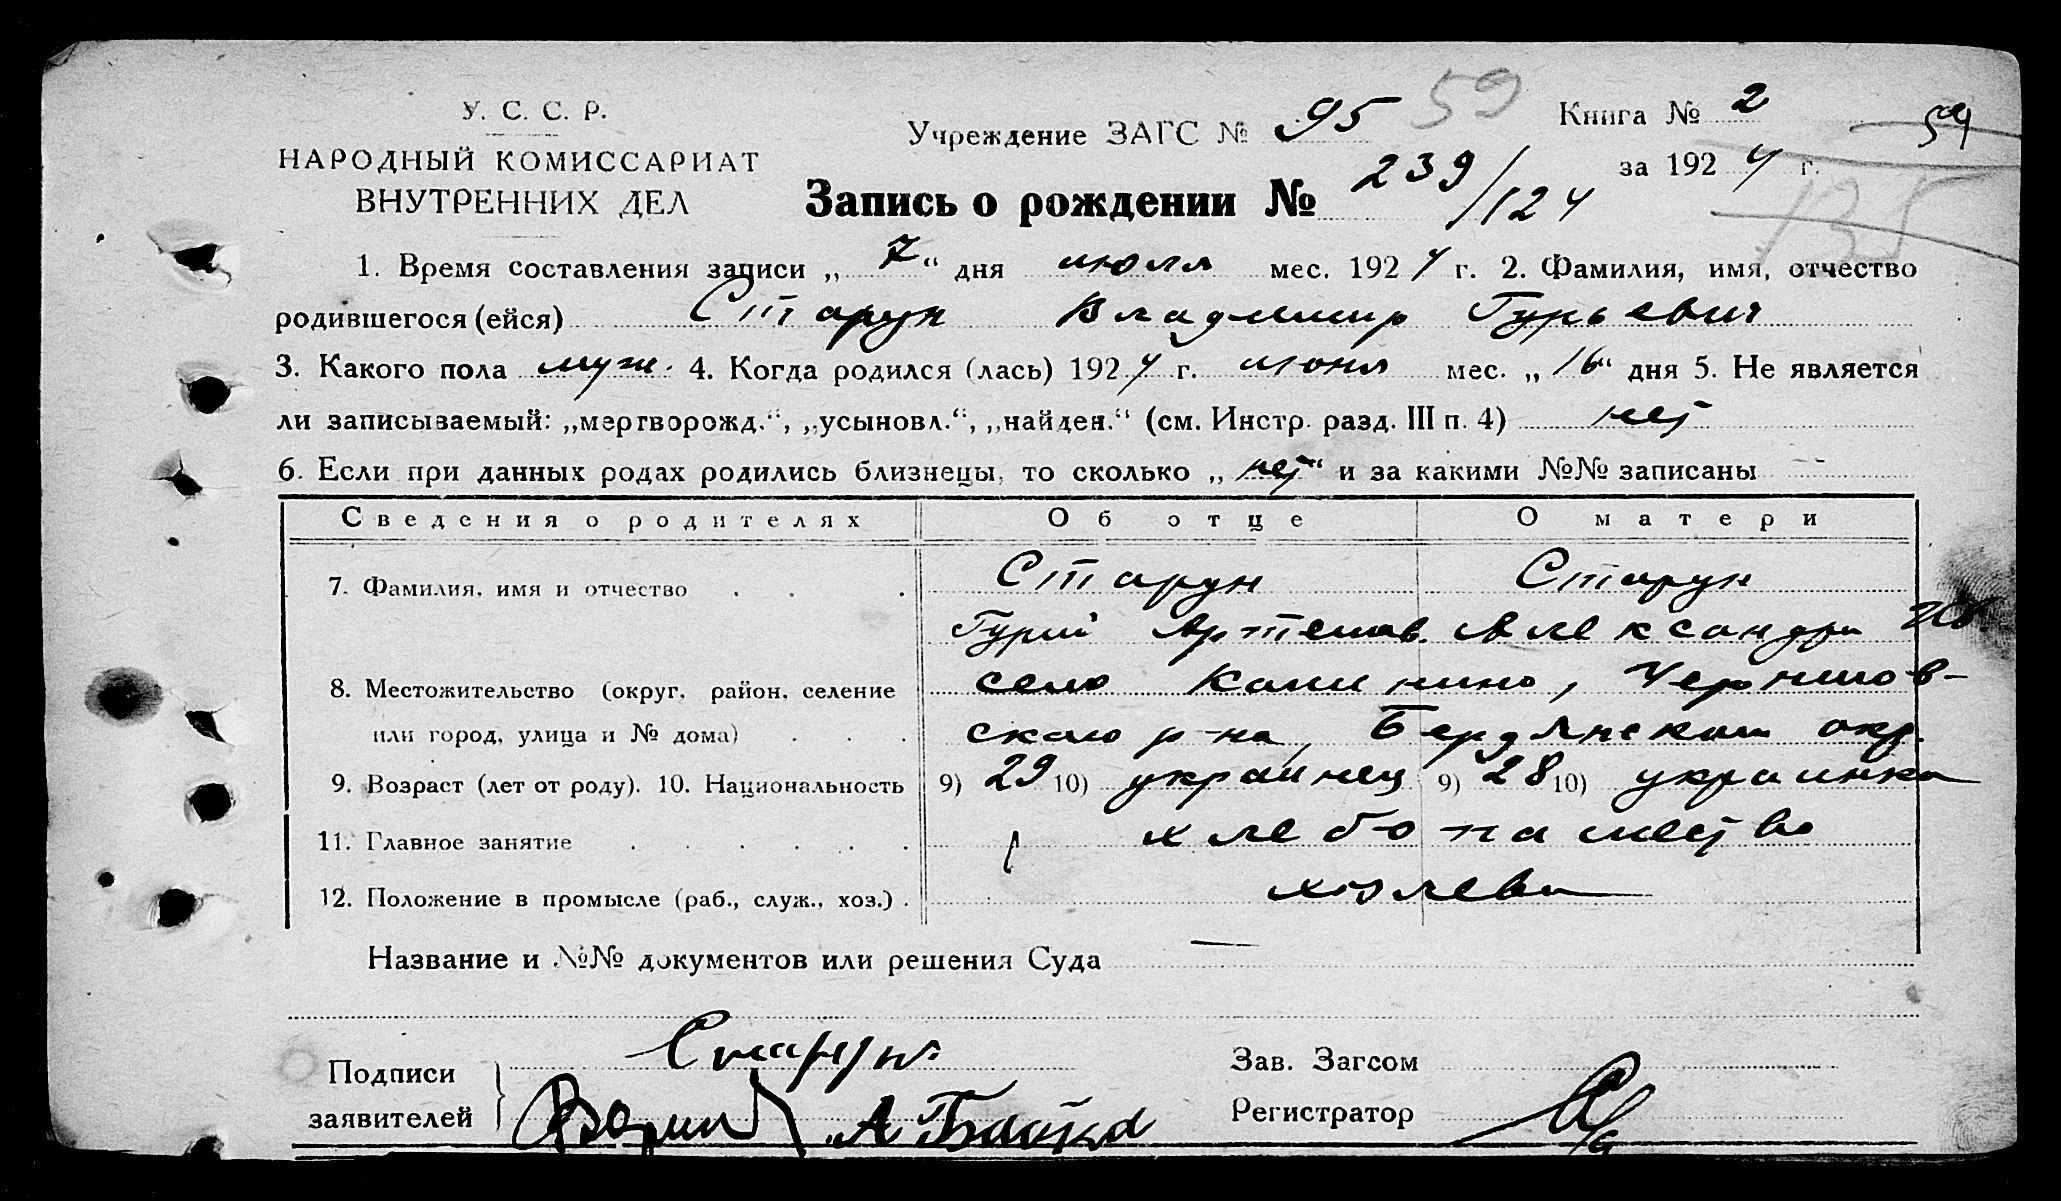 У. С. С. Р.
НАРОДНЫЙ КОМИССАРИАТ
ВНУТРЕННИХ ДЕЛ
Учреждение ЗАГС № 95 59
Книга № 2
за 192 4 г.
59
135
Запись о рождении № 239/124
1. Время составления записи „ 7 “ дня июля мес. 192 4 г. 2. Фамилия, имя, отчество
родившегося (ейся) Старун Владимир Гурьевич
3. Какого пола муж. 4. Когда родился (лась) 192 4 г. июня мес. „ 16 “ дня 5. Не является
ли записываемый: „мертворожд.“, „усыновл.“, „найден.“ (см. Инстр. разд. III п. 4) нет
6. Если при данных родах родились близнецы, то сколько „ нет “ и за какими №№ записаны - -
Сведения о родителях Об отце О матери
7. Фамилия, имя и отчество . . . Старун Старун
Гурий Артемов. Александра
8. Местожительство (округ, район, селение село Калинино, Чернигов-
или город, улица и № дома) . . . ского р-на, Бердянском окр.
9. Возраст (лет от роду). 10. Национальность 9) 29 10) украинец 9) 28 10) украинка
11. Главное занятие . . . . . . хлебопашество
12. Положение в промысле (раб., служ., хоз.) . хозяева
Название и №№ документов или решения Суда —
Подписи Старун Зав. Загсом
заявителей А Бойко Регистратор